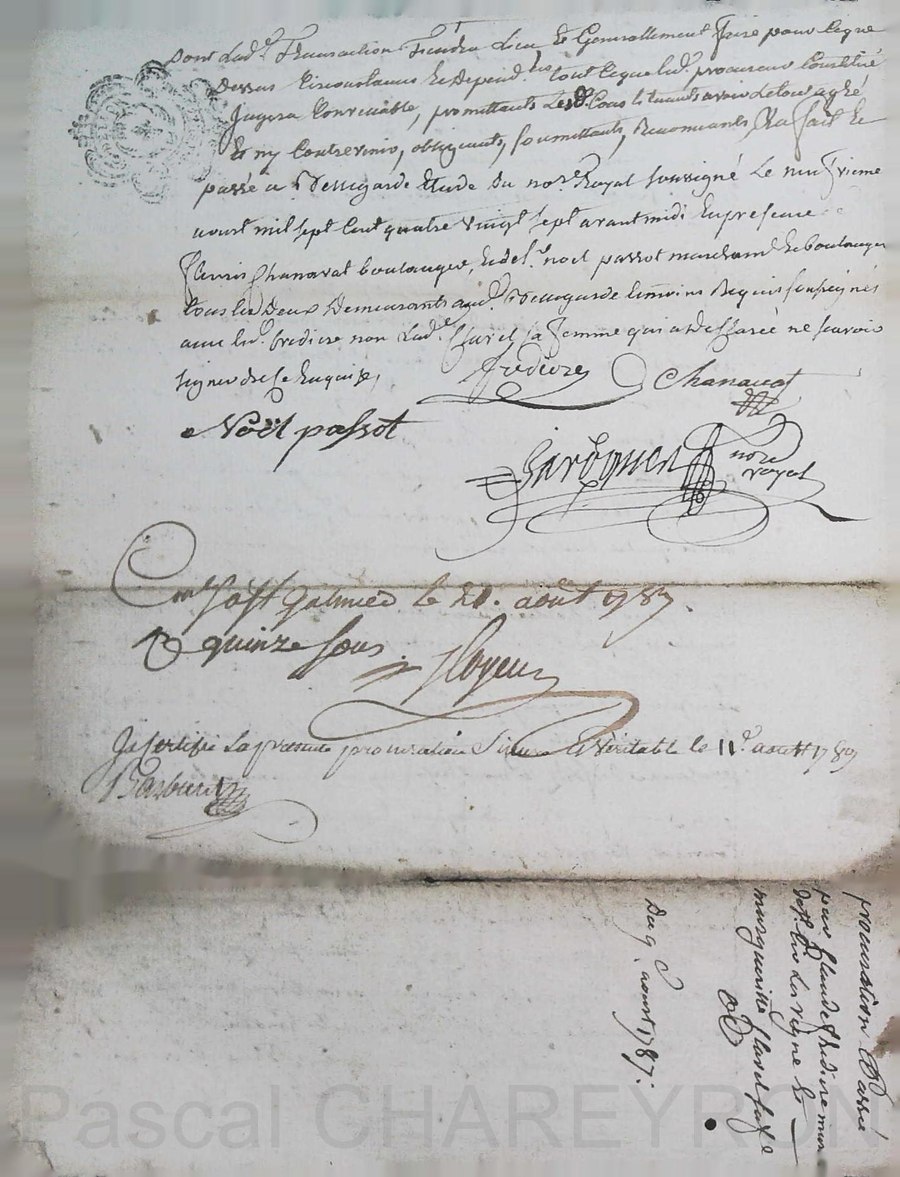 dont lad.e Transaction Tiendra Lieu Et Generallement faire pour ceque
dessus Circonstances Et dependces tout ceque led. procureur Constitué
Jugera Convenable, promettants Les d. Constituants avoir Letout agréé
Et ny Contrevenir, obligeants, soumettants, Renonceants, fait Et
passé a Bellegarde Etude du nore Royal soussigné Le neufvieme
aoust mil sept Cent quatre vingt sept avant midi En presence
fleury Chanavat boulanger, Et de sr. noel passot marchand Et boulanger
tous les deux Demeurants aud. Bellegarde temoins Requis soussignés
avec led. fredière non lad.e Clavel sa femme qui a declaree ne scavoir
signer de ce Enquise,
fredière Chanavat
Noël passot
nore royal
St galmier le 21. août 1787.
R quinze sous
Je Certifie La presente procuration Sincere et Veritable le 11e. aoust 1787
procuration Passée
par Claude fredière
de La vigne Et
margueritte Clavel sa fe
Du 9. aoust 1787.
Pascal CHAREYRON